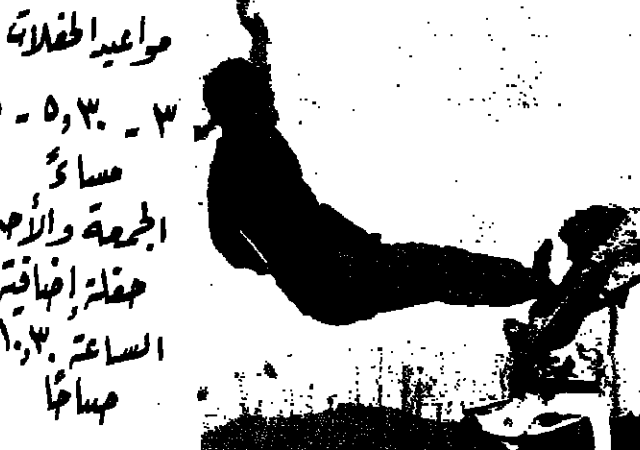 مواعيد الحفلات
٣ - ٥,٣٠ -
مساءً
الجمعة والأحد
حفلة إضافية
الساعة ١٠,٣٠
صباحًا